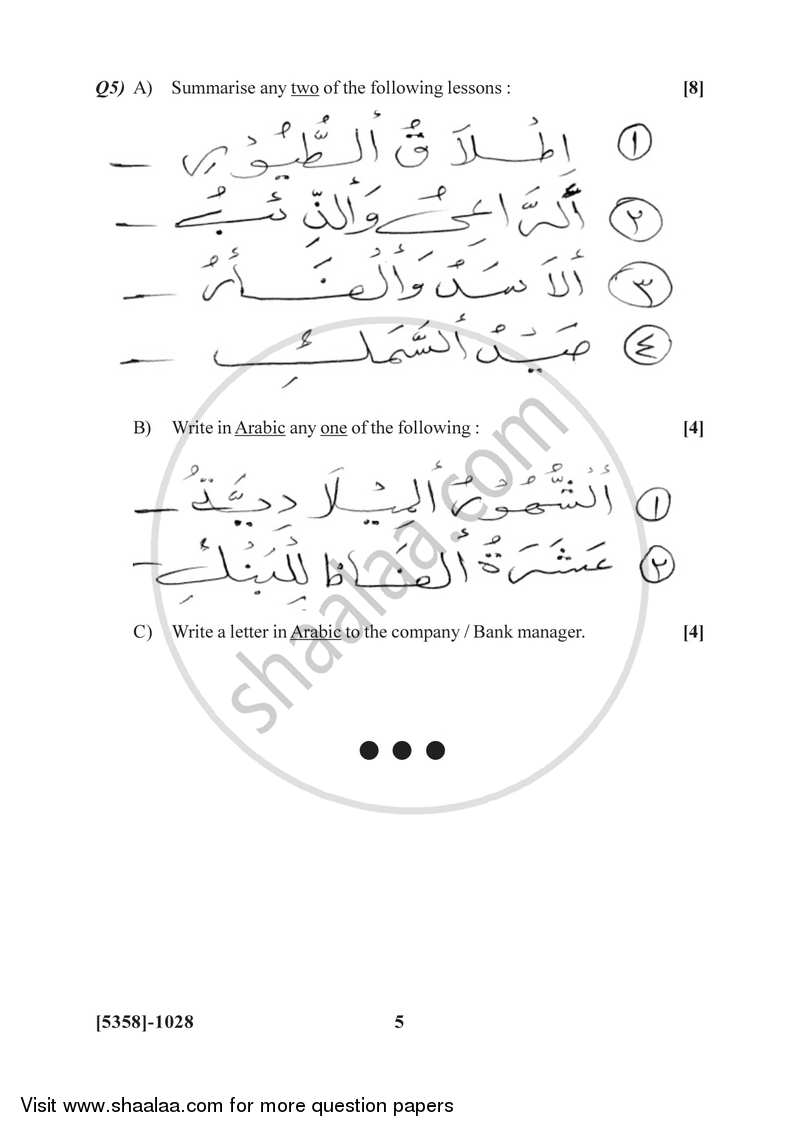 Q5) A) Summarise any two of the following lessons : [8]
١ إِطْلَاقُ ألطُّيُوْرِ —
٢ ألرَّاعِىُ وَألذِّئبُ —
٣ ألَاسَدُ وَألْفَأرُ —
٤ صَيْدُ ألسَّمَكِ —
B) Write in Arabic any one of the following : [4]
١ ألشُّهُورُ ألمِيْلَادِيَّةُ —
٢ عَشَرَةُ ألفَاظٍ لِلْبَنْكِ —
C) Write a letter in Arabic to the company / Bank manager. [4]
shaalaa.com
[5358]-1028 5
Visit www.shaalaa.com for more question papers